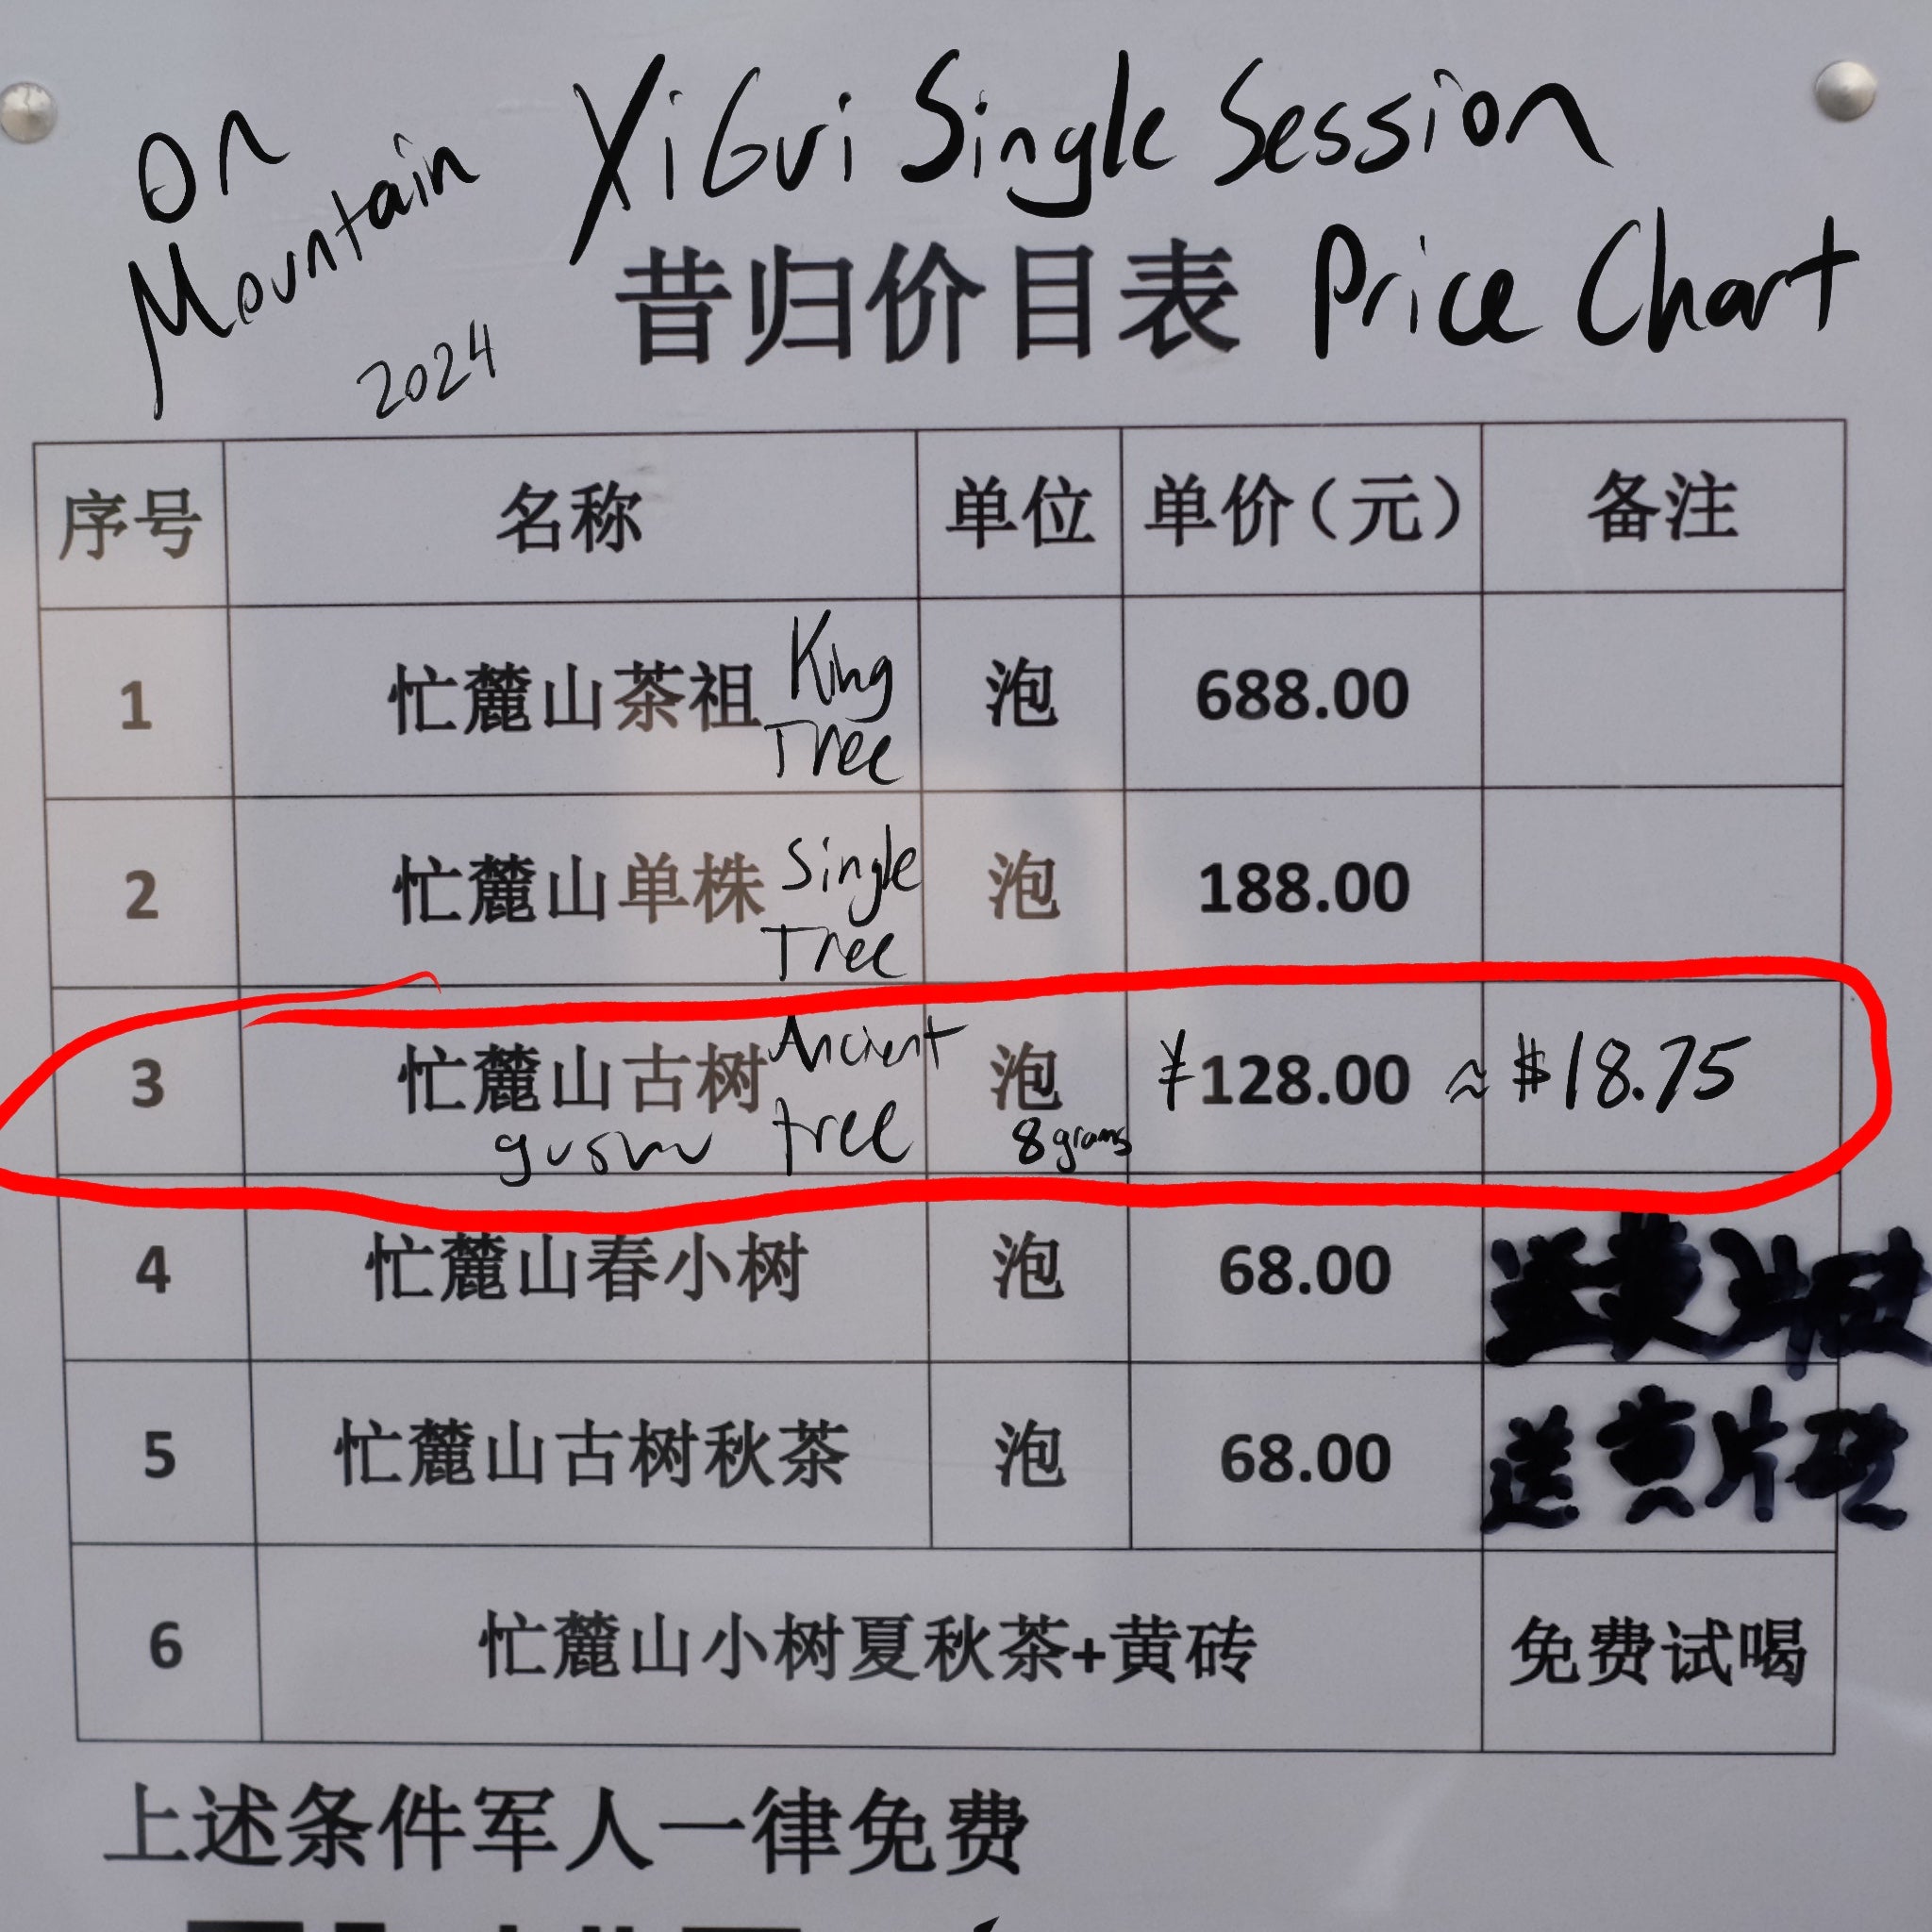 On Mountain 2024
XiGui Single Session Price Chart
昔归价目表
序号 名称 单位 单价（元） 备注
1 忙麓山茶祖 King Tree 泡 688.00
2 忙麓山单株 Single Tree 泡 188.00
3 忙麓山古树 gushu Ancient tree 泡 8 grams ¥128.00 ≈ $18.75
4 忙麓山春小树 泡 68.00 送黄片砖
5 忙麓山古树秋茶 泡 68.00 送黄片砖
6 忙麓山小树夏秋茶+黄砖 免费试喝
上述条件军人一律免费